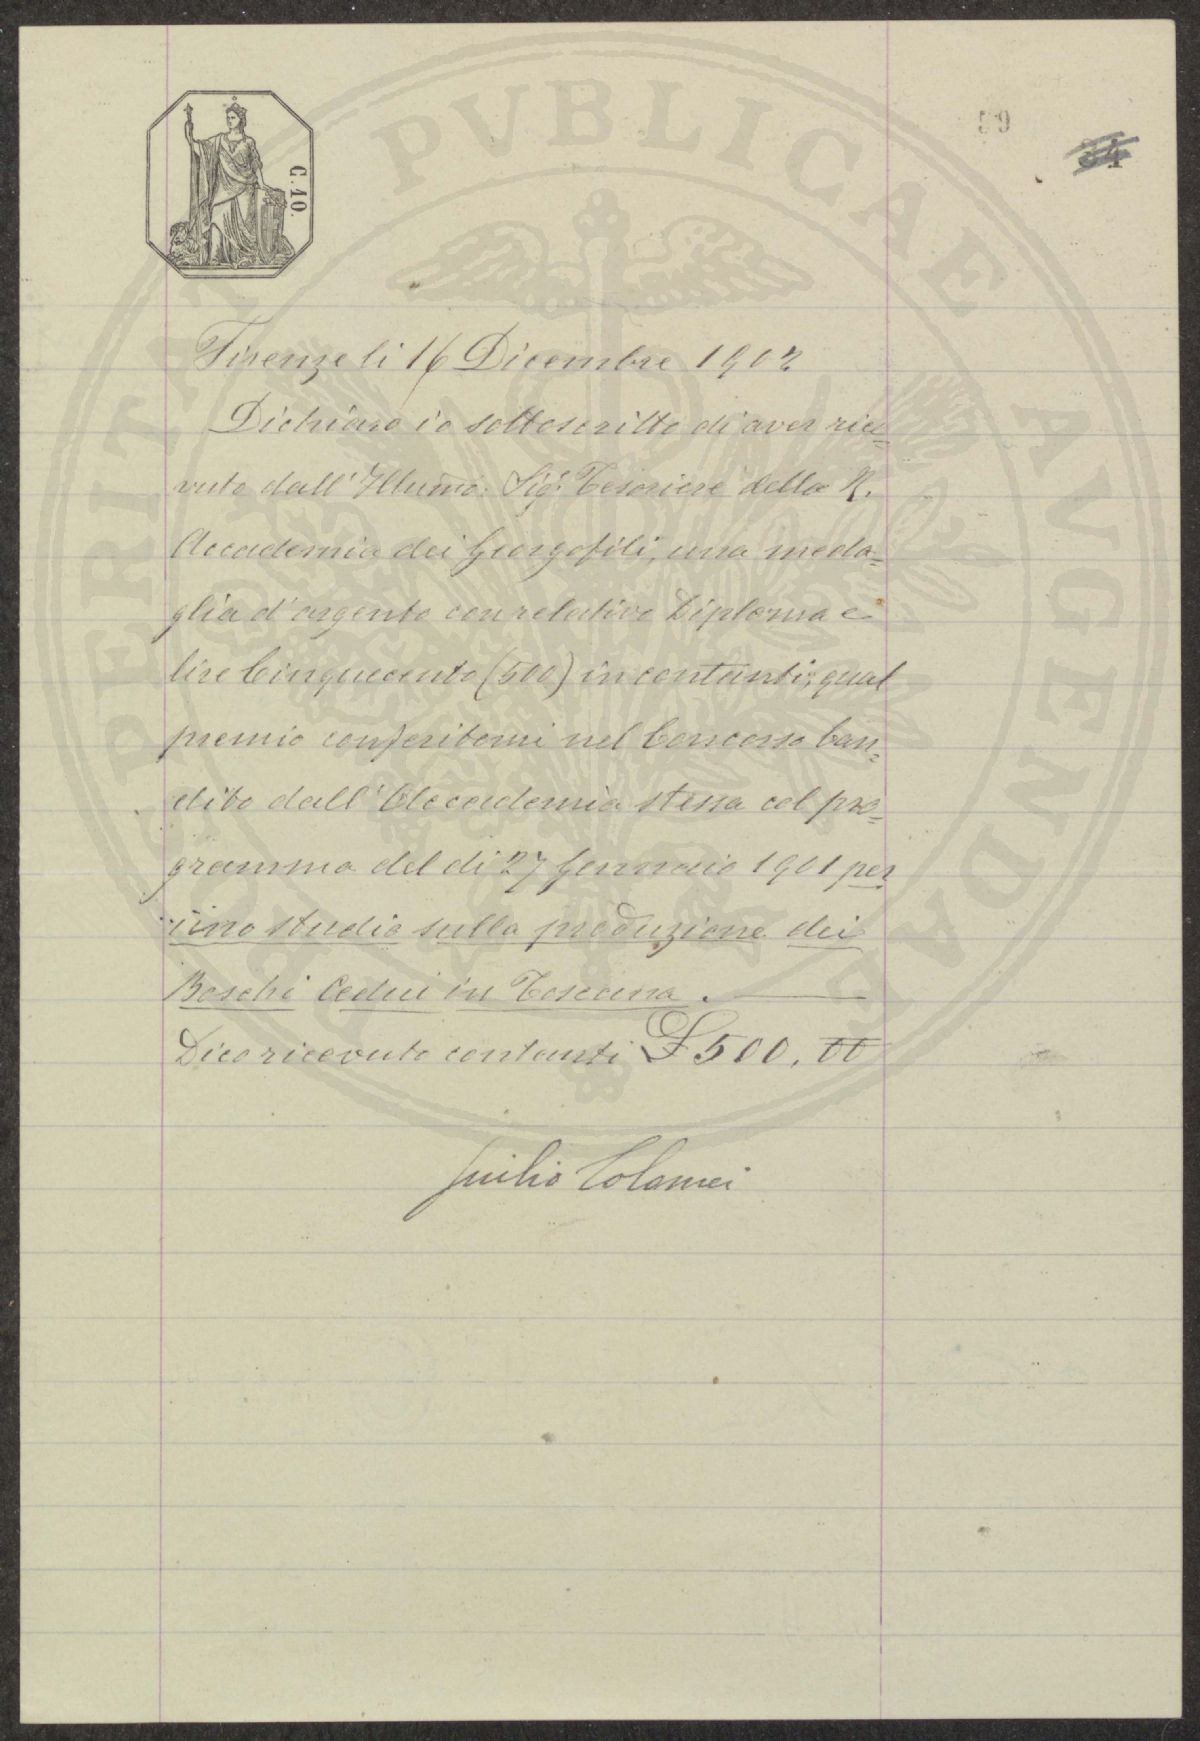 PROSPERITATI PVBLICAE AVGENDAE
C. 10.
59
34
Firenze li 16 Dicembre 1902
Dichiaro io sottoscritto di aver rice=
vuto dall'Illumō. Sig. Tesoriere della R.
Accademia dei Georgofili, una meda=
glia d'argento con relativo Diploma e
lire Cinquecento (500) in contanti, qual
premio conferitomi nel Concorso ban=
dito dall'Accademia stessa col pro=
gramma del dì 27 Gennaio 1901 per
uno studio sulla produzione dei
Boschi Cedui in Toscana.
Dico ricevuto contanti £ 500. 00